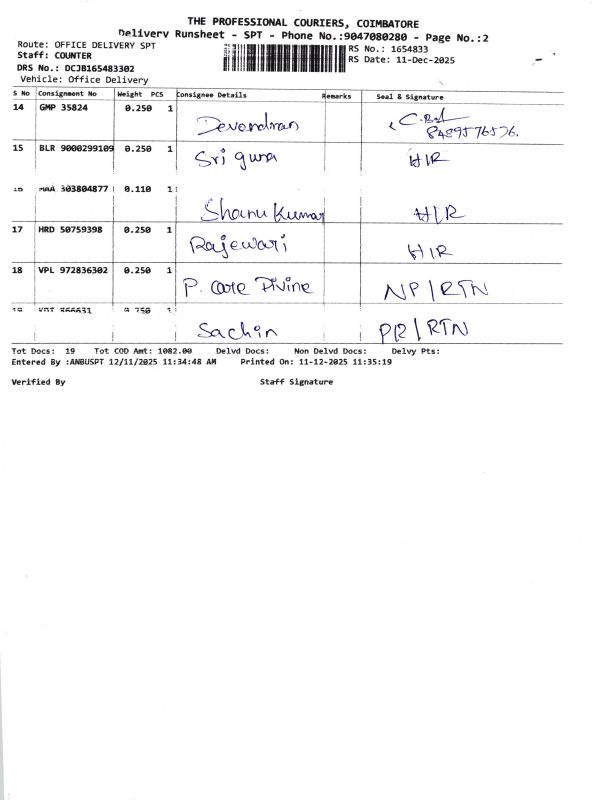 THE PROFESSIONAL COURIERS, COIMBATORE
Delivery Runsheet - SPT - Phone No.:9047080280 - Page No.:2
Route: OFFICE DELIVERY SPT RS No.: 1654833
Staff: COUNTER RS Date: 11-Dec-2025
DRS No.: DCJB165483302
Vehicle: Office Delivery
S No Consignment No Weight PCS Consignee Details Remarks Seal & Signature
14 GMP 35824 0.250 1 Devendran
8489576526.
15 BLR 9000299109 0.250 1 Sri guru H/R
16 MAA 303804877 0.110 1 Shanu Kumar H/R
17 HRD 50759398 0.250 1 Rajewari H/R
18 VPL 972836302 0.250 1 P. care Divine NP/RTN
19 866631 0.250 1 Sachin PR/RTN
Tot Docs: 19 Tot COD Amt: 1082.00 Delvd Docs: Non Delvd Docs: Delvy Pts:
Entered By :ANBUSPT 12/11/2025 11:34:48 AM Printed On: 11-12-2025 11:35:19
Verified By Staff Signature